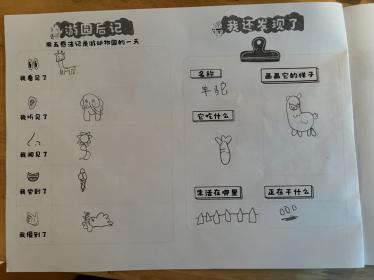 游园后记
用五感法记录游动物园的一天
我看见了
我听见了
我闻见了
我尝到了
我摸到了
我还发现了
名称
羊驼
画画它的样子
它吃什么
生活在哪里
正在干什么